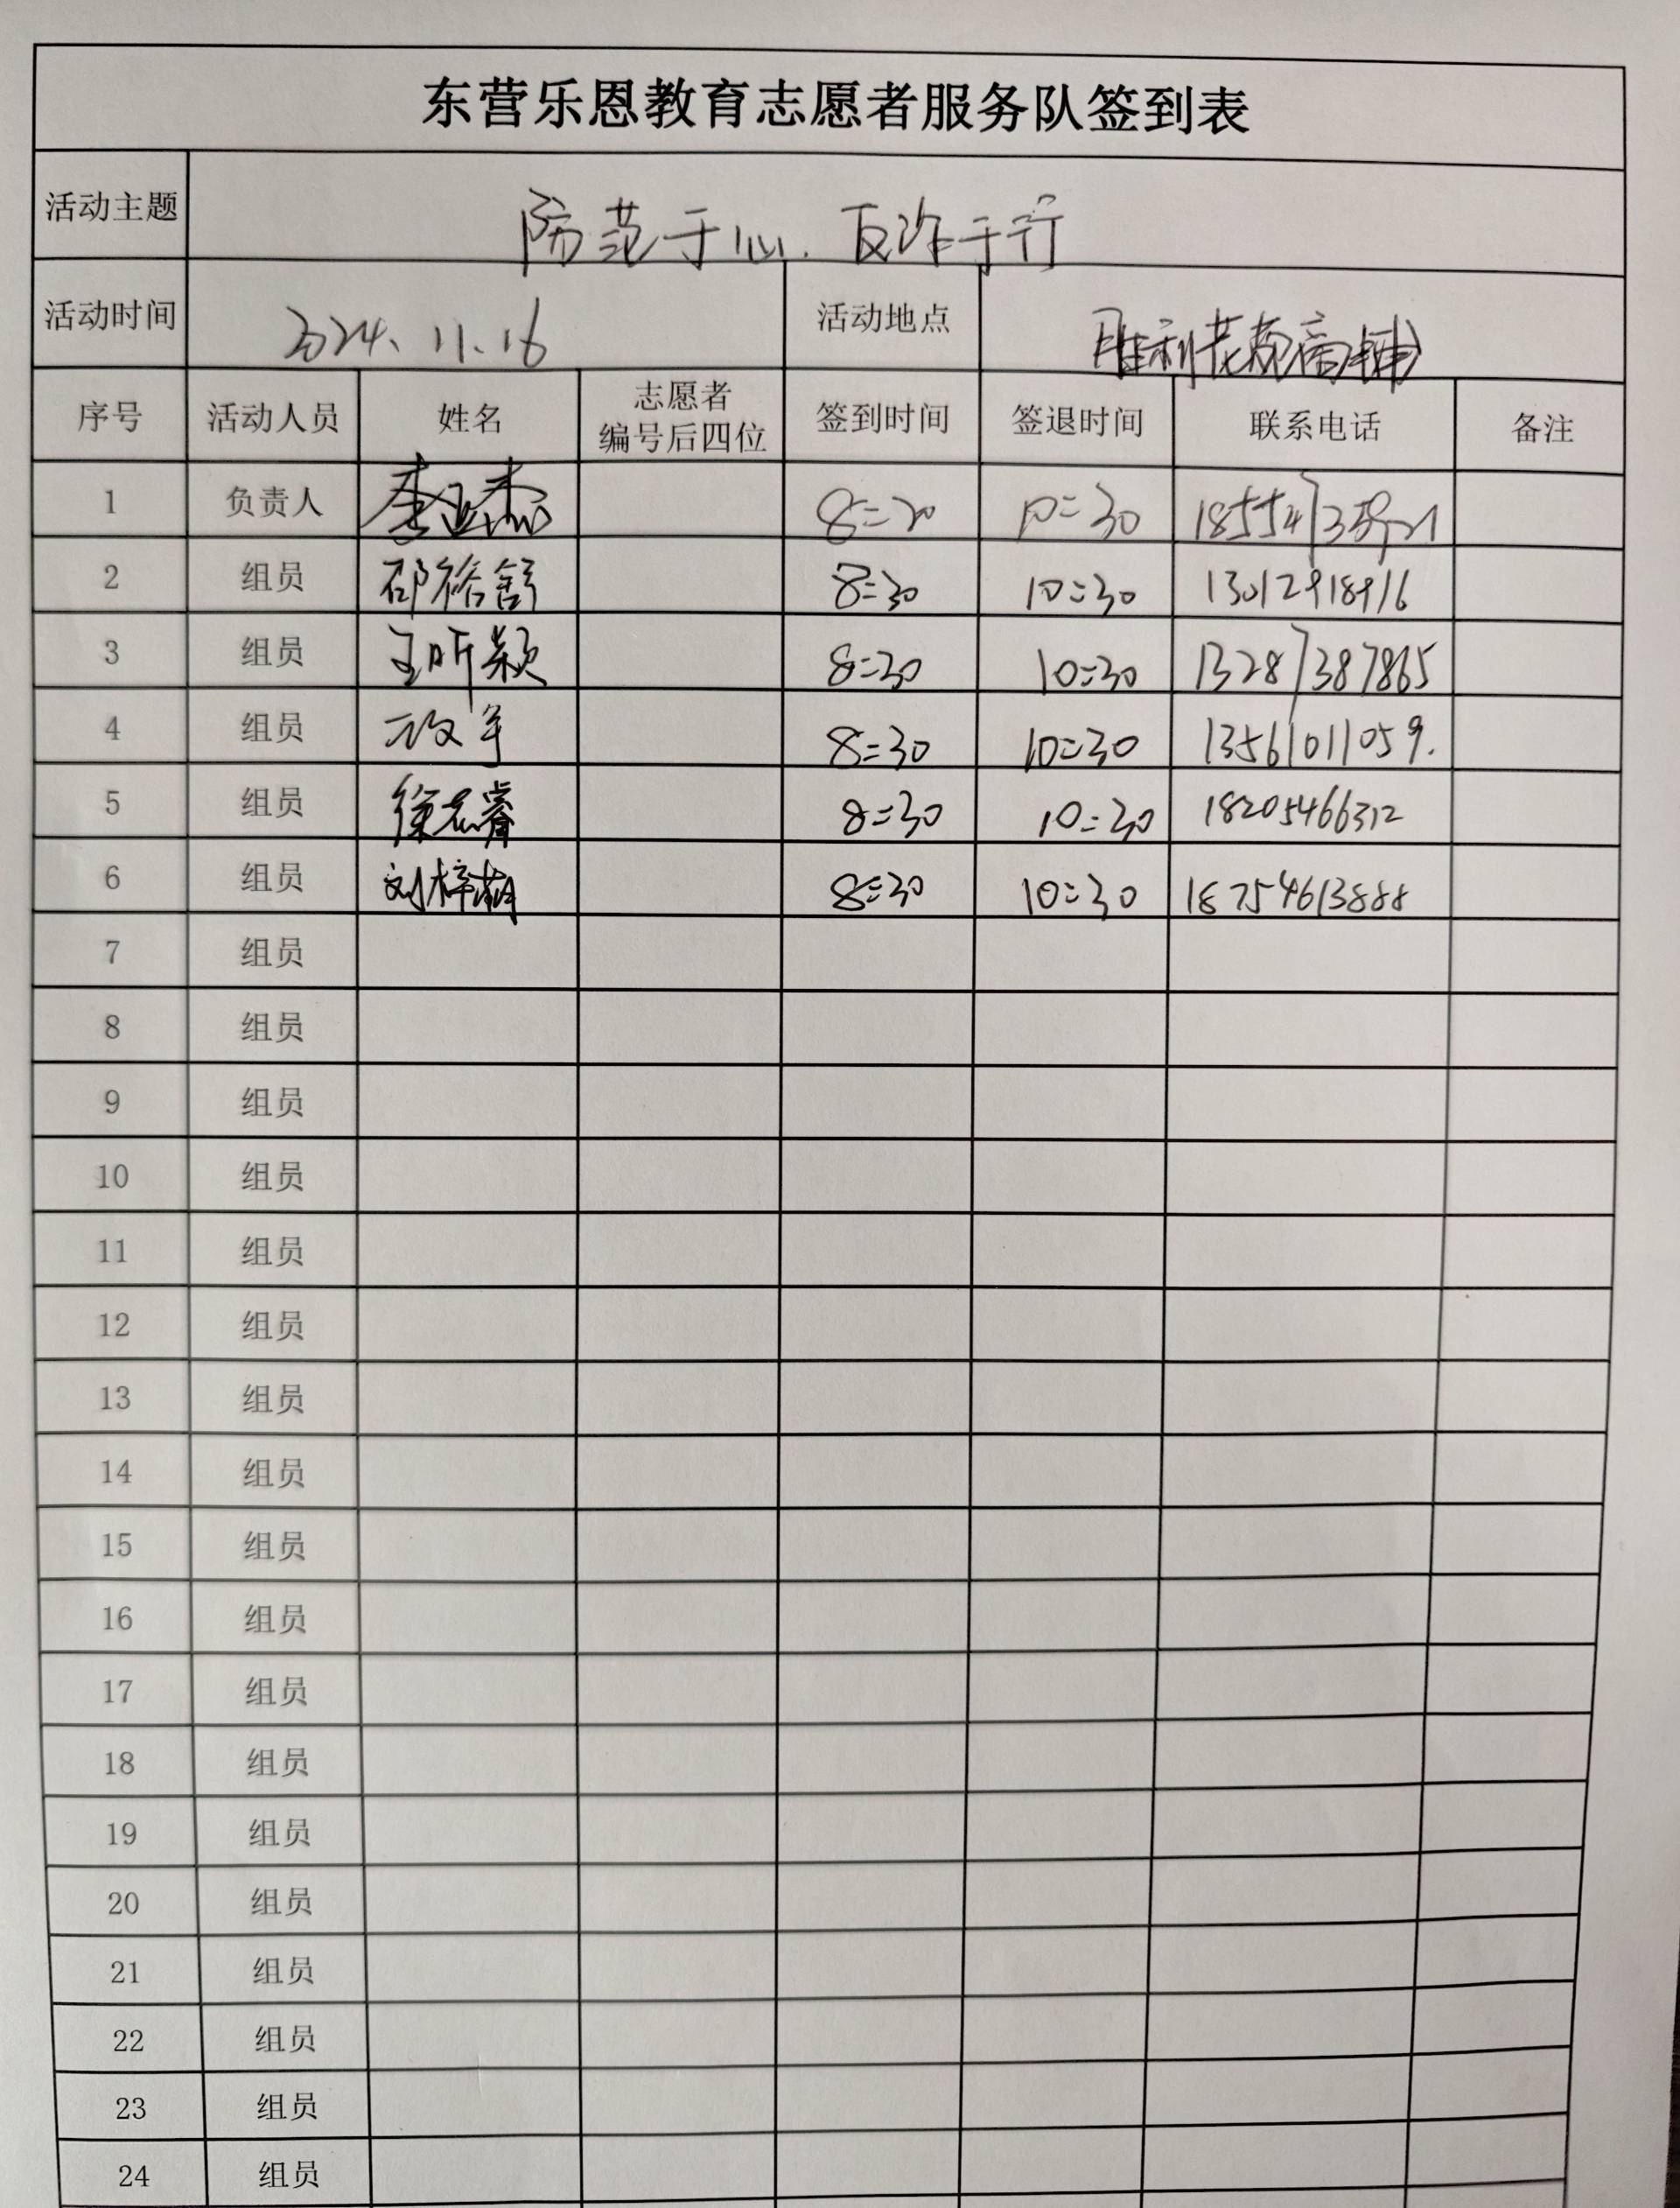 东营乐恩教育志愿者服务队签到表
活动主题 防范于心.反诈于行
活动时间 2024、11.16 活动地点 胜利花苑商铺
序号 活动人员 姓名 志愿者编号后四位 签到时间 签退时间 联系电话 备注
1 负责人 李亚杰 8:20 10:30
2 组员 邵裕舒 8:30 10:30
3 组员 王昕颖 8:30 10:30 13287387865
4 组员 8:30 10:30 13561011059.
5 组员 徐志睿 8:30 10:30 18205466312
6 组员 刘梓萌 8:30 10:30 18754613888
7 组员
8 组员
9 组员
10 组员
11 组员
12 组员
13 组员
14 组员
15 组员
16 组员
17 组员
18 组员
19 组员
20 组员
21 组员
22 组员
23 组员
24 组员